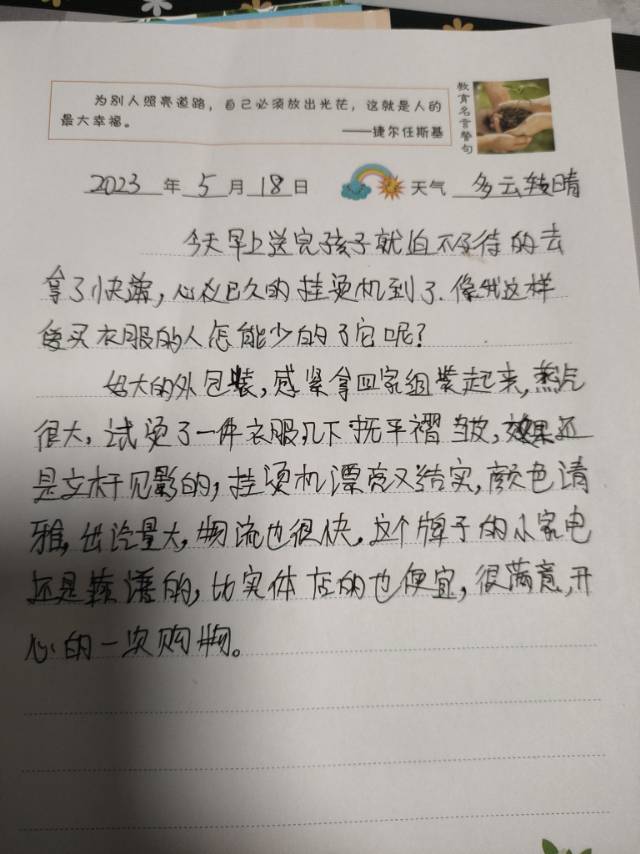 为别人照亮道路，自己必须放出光芒，这就是人的
最大幸福。
——捷尔任斯基
教育名言警句
2023年5月18日 天气 多云转晴
今天早上送完孩子就迫不及待的去
拿了快递，心仪已久的挂烫机到了.像我这样
爱买衣服的人怎能少的了它呢？
好大的外包装，感紧拿回家组装起来，蒸气
很大，试烫了一件衣服几下抚平褶皱，效果还
是立杆见影的，挂烫机漂亮又结实，颜色清
雅，出汽量大，物流也很快，这个牌子的小家电
还是靠谱的，比实体店的也便宜，很满意，开
心的一次购物。